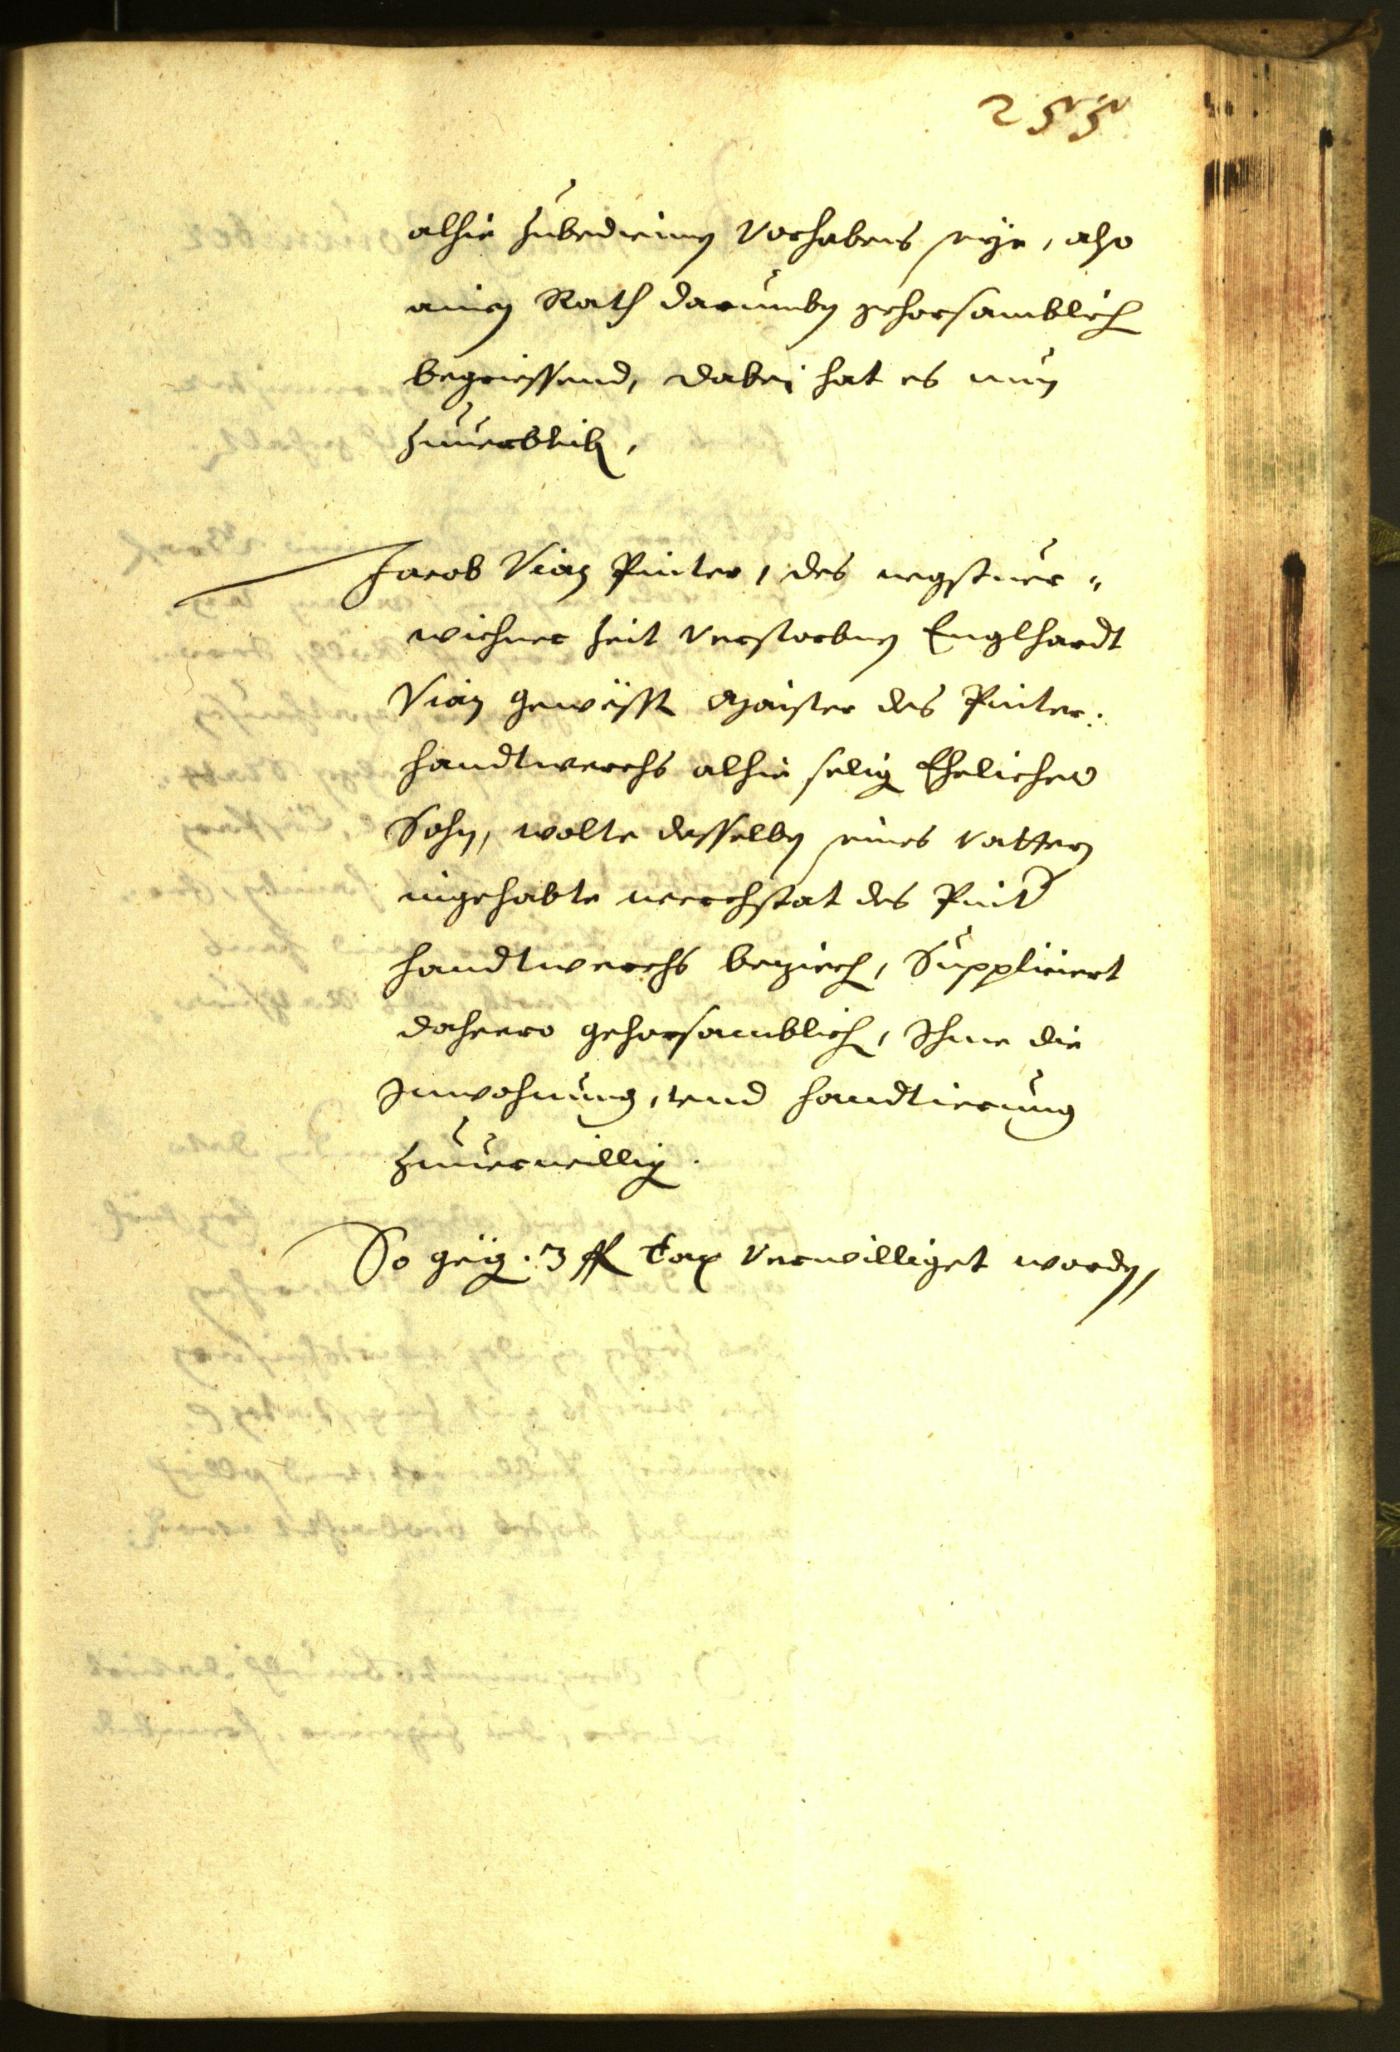 255
alhie zubedienen Vorhabens seÿe, also
ainen Rath darumben gehorsamblich
begriessend, dabei hat es nun
zuuerbleiben,
Jacob Vian Pinter, des negstuer-
wichner Zeit Verstorbnen Englhardt
Vian gewesst Maister des Pinter:
handtwerchs alhie selig Ehelicher
Sohn, wolte desselben seines Vattern
ingehabte werchstat des Pinter
handtwerchs beziechen, Suppliciert
dahero gehorsamblich, Ihme die
Inwohnung, vnd handtierung
zuuerwilligen.
So gegen 3 fl Tax Verwilliget worden,